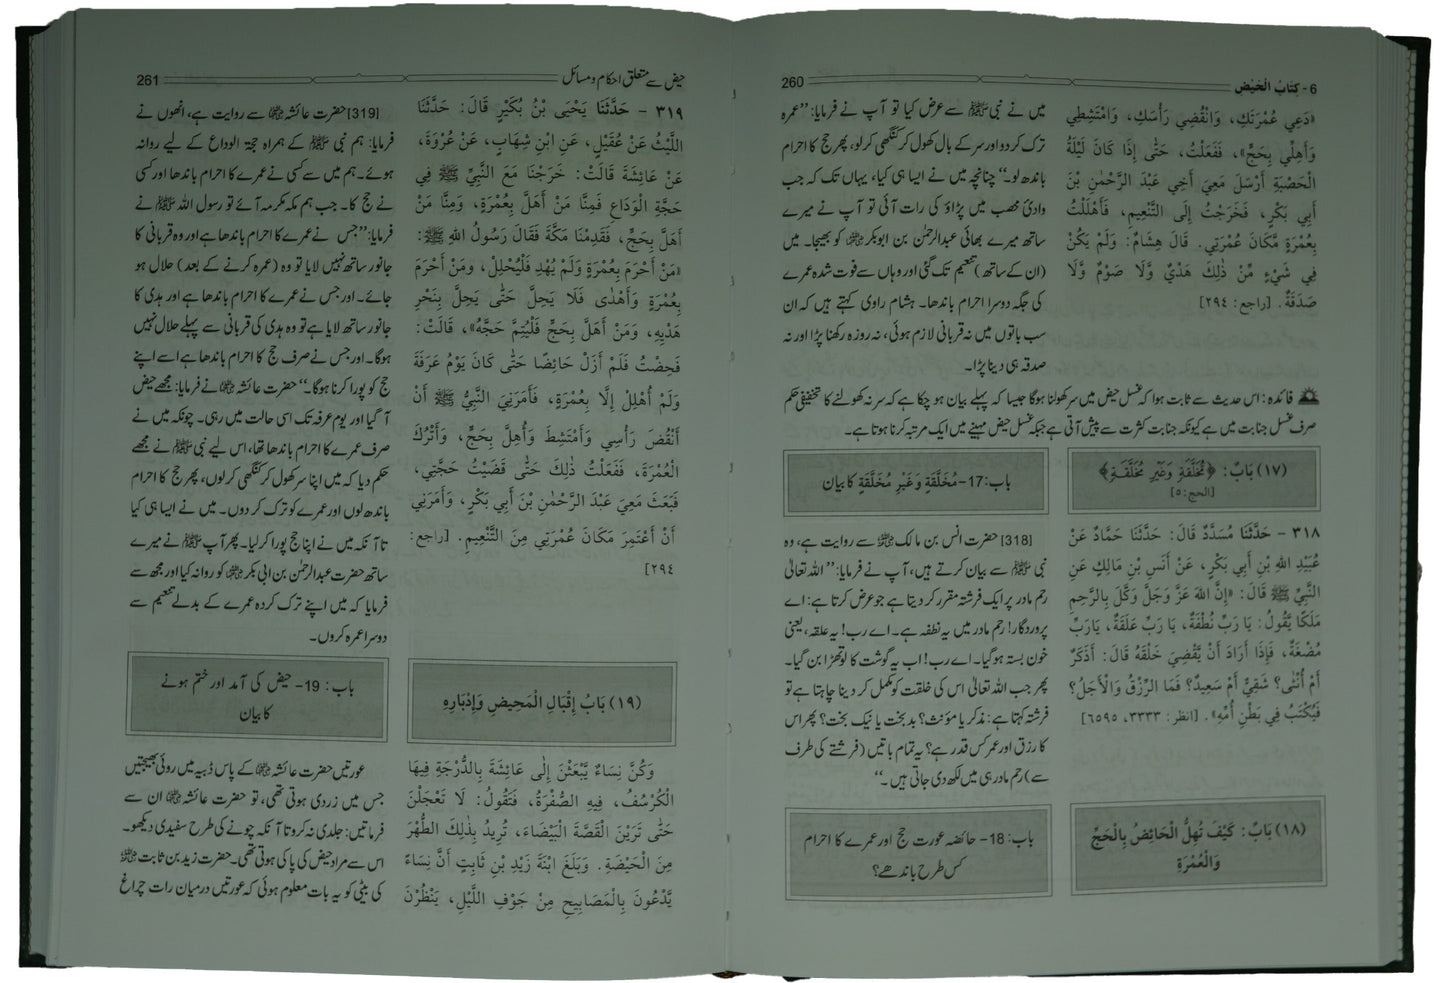 6- كِتَابُ الْحَيْض
260
«دَعِي عُمْرَتَكِ، وَانْقُضِي رَأْسَكِ، وَامْتَشِطِي
وَأَهِلِّي بِحَجٍّ»، فَفَعَلْتُ، حَتَّى إِذَا كَانَ لَيْلَةُ
الْحَصْبَةِ أَرْسَلَ مَعِيَ أَخِي عَبْدَ الرَّحْمٰنِ بْنَ
أَبِي بَكْرٍ، فَخَرَجْتُ إِلَى التَّنْعِيمِ، فَأَهْلَلْتُ
بِعُمْرَةٍ مَّكَانَ عُمْرَتِي. قَالَ هِشَامٌ: وَلَمْ يَكُنْ
فِي شَيْءٍ مِّنْ ذٰلِكَ هَدْيٌ وَّلَا صَوْمٌ وَّلَا
صَدَقَةٌ. [راجع: ٢٩٤]
میں نے نبی ﷺ سے عرض کیا تو آپ نے فرمایا: ”عمرہ
ترک کر دو اور سر کے بال کھول کر کنگھی کر لو، پھر حج کا احرام
باندھ لو۔“ چنانچہ میں نے ایسا ہی کیا، یہاں تک کہ جب
وادیٔ محصب میں پڑاؤ کی رات آئی تو آپ نے میرے
ساتھ میرے بھائی عبدالرحمٰن بن ابوبکر ؓ کو بھیجا۔ میں
(ان کے ساتھ) تنعیم تک گئی اور وہاں سے فوت شدہ عمرے
کی جگہ دوسرا احرام باندھا۔ ہشام راوی کہتے ہیں کہ ان
سب باتوں میں نہ قربانی لازم ہوئی، نہ روزہ رکھنا پڑا اور نہ
صدقہ ہی دینا پڑا۔
فائدہ: اس حدیث سے ثابت ہوا کہ غسل حیض میں سر کھولنا ہوگا جیسا کہ پہلے بیان ہو چکا ہے کہ سر نہ کھولنے کا تخفیفی حکم
صرف غسل جنابت میں ہے کیونکہ جنابت کثرت سے پیش آتی ہے جبکہ غسل حیض مہینے میں ایک مرتبہ کرنا ہوتا ہے۔
(١٧) بَابٌ: ﴿مُّخَلَّقَةٍ وَغَيْرِ مُخَلَّقَةٍ﴾
[الحج: ٥]
باب: 17- مُخَلَّقَةٍ وَغَيْرِ مُخَلَّقَةٍ کا بیان
٣١٨ - حَدَّثَنَا مُسَدَّدٌ قَالَ: حَدَّثَنَا حَمَّادٌ عَنْ
عُبَيْدِ اللهِ بْنِ أَبِي بَكْرٍ، عَنْ أَنَسِ بْنِ مَالِكٍ عَنِ
النَّبِيِّ ﷺ قَالَ: «إِنَّ اللهَ عَزَّ وَجَلَّ وَكَّلَ بِالرَّحِمِ
مَلَكًا يَّقُولُ: يَا رَبِّ نُطْفَةٌ، يَا رَبِّ عَلَقَةٌ، يَارَبِّ
مُضْغَةٌ، فَإِذَا أَرَادَ أَنْ يَّقْضِيَ خَلْقَهُ قَالَ: أَذَكَرٌ
أَمْ أُنْثٰى؟ شَقِيٌّ أَمْ سَعِيدٌ؟ فَمَا الرِّزْقُ وَالْأَجَلُ؟
فَيُكْتَبُ فِي بَطْنِ أُمِّهِ». [انظر: ٣٣٣٣، ٦٥٩٥]
[318] حضرت انس بن مالک ؓ سے روایت ہے، وہ
نبی ﷺ سے بیان کرتے ہیں، آپ نے فرمایا: ”اللہ تعالیٰ
رحم مادر پر ایک فرشتہ مقرر کر دیتا ہے جو عرض کرتا ہے: اے
پروردگار! رحم مادر میں یہ نطفہ ہے۔ اے رب! یہ علقہ، یعنی
خون بستہ ہو گیا۔ اے رب! اب یہ گوشت کا لوتھڑا بن گیا۔
پھر جب اللہ تعالیٰ اس کی خلقت کو مکمل کر دینا چاہتا ہے تو
فرشتہ کہتا ہے: مذکر یا مؤنث؟ بدبخت یا نیک بخت؟ پھر اس
کا رزق اور عمر کس قدر ہے؟ یہ تمام باتیں (فرشتے کی طرف
سے) رحم مادر ہی میں لکھ دی جاتی ہیں۔“
(١٨) بَابٌ: كَيْفَ تُهِلُّ الْحَائِضُ بِالْحَجِّ
وَالْعُمْرَةِ
باب: 18- حائضہ عورت حج اور عمرے کا احرام
کس طرح باندھے؟
حیض سے متعلق احکام و مسائل
261
٣١٩ - حَدَّثَنَا يَحْيَى بْنُ بُكَيْرٍ قَالَ: حَدَّثَنَا
اللَّيْثُ عَنْ عُقَيْلٍ، عَنِ ابْنِ شِهَابٍ، عَنْ عُرْوَةَ،
عَنْ عَائِشَةَ قَالَتْ: خَرَجْنَا مَعَ النَّبِيِّ ﷺ فِي
حَجَّةِ الْوَدَاعِ فَمِنَّا مَنْ أَهَلَّ بِعُمْرَةٍ، وَمِنَّا مَنْ
أَهَلَّ بِحَجٍّ، فَقَدِمْنَا مَكَّةَ فَقَالَ رَسُولُ اللهِ ﷺ:
«مَنْ أَحْرَمَ بِعُمْرَةٍ وَلَمْ يُهْدِ فَلْيُحْلِلْ، وَمَنْ أَحْرَمَ
بِعُمْرَةٍ وَأَهْدٰى فَلَا يَحِلُّ حَتّٰى يَحِلَّ بِنَحْرِ
هَدْيِهِ، وَمَنْ أَهَلَّ بِحَجٍّ فَلْيُتِمَّ حَجَّهُ»، قَالَتْ:
فَحِضْتُ فَلَمْ أَزَلْ حَائِضًا حَتّٰى كَانَ يَوْمُ عَرَفَةَ
وَلَمْ أُهْلِلْ إِلَّا بِعُمْرَةٍ، فَأَمَرَنِي النَّبِيُّ ﷺ أَنْ
أَنْقُضَ رَأْسِي وَأَمْتَشِطَ وَأُهِلَّ بِحَجٍّ، وَأَتْرُكَ
الْعُمْرَةَ، فَفَعَلْتُ ذٰلِكَ حَتّٰى قَضَيْتُ حَجَّتِي،
فَبَعَثَ مَعِيَ عَبْدَ الرَّحْمٰنِ بْنَ أَبِي بَكْرٍ، وَأَمَرَنِي
أَنْ أَعْتَمِرَ مَكَانَ عُمْرَتِي مِنَ التَّنْعِيمِ. [راجع:
٢٩٤]
[319] حضرت عائشہ ؓ سے روایت ہے، انھوں نے
فرمایا: ہم نبی ﷺ کے ہمراہ حجۃ الوداع کے لیے روانہ
ہوئے۔ ہم میں سے کسی نے عمرے کا احرام باندھا اور کسی
نے حج کا۔ جب ہم مکہ مکرمہ آئے تو رسول اللہ ﷺ نے
فرمایا: ”جس نے عمرے کا احرام باندھا ہے اور وہ قربانی کا
جانور ساتھ نہیں لایا تو وہ (عمرہ کرنے کے بعد) حلال ہو
جائے۔ اور جس نے عمرے کا احرام باندھا ہے اور ہدی کا
جانور ساتھ لایا ہے تو وہ ہدی کی قربانی سے پہلے حلال نہیں
ہوگا۔ اور جس نے صرف حج کا احرام باندھا ہے اسے اپنے
حج کو پورا کرنا ہوگا۔“ حضرت عائشہ ؓ نے فرمایا: مجھے حیض
آ گیا اور یوم عرفہ تک اسی حالت میں رہی۔ چونکہ میں نے
صرف عمرے کا احرام باندھا تھا، اس لیے نبی ﷺ نے مجھے
حکم دیا کہ میں اپنا سر کھول کر کنگھی کر لوں، پھر حج کا احرام
باندھ لوں اور عمرے کو ترک کر دوں۔ میں نے ایسا ہی کیا
تا آنکہ میں نے اپنا حج پورا کر لیا۔ پھر آپ ﷺ نے میرے
ساتھ حضرت عبدالرحمٰن بن ابی بکر ؓ کو روانہ کیا اور مجھ سے
فرمایا کہ میں اپنے ترک کردہ عمرے کے بدلے تنعیم سے
دوسرا عمرہ کروں۔
(١٩) بَابُ إِقْبَالِ الْمَحِيضِ وَإِدْبَارِهِ
باب: 19- حیض کی آمد اور ختم ہونے
کا بیان
وَكُنَّ نِسَاءٌ يَّبْعَثْنَ إِلٰى عَائِشَةَ بِالدُّرْجَةِ فِيهَا
الْكُرْسُفُ، فِيهِ الصُّفْرَةُ، فَتَقُولُ: لَا تَعْجَلْنَ
حَتّٰى تَرَيْنَ الْقَصَّةَ الْبَيْضَاءَ، تُرِيدُ بِذٰلِكَ الطُّهْرَ
مِنَ الْحَيْضَةِ. وَبَلَغَ ابْنَةَ زَيْدِ بْنِ ثَابِتٍ أَنَّ نِسَاءً
يَّدْعُونَ بِالْمَصَابِيحِ مِنْ جَوْفِ اللَّيْلِ، يَنْظُرْنَ
عورتیں حضرت عائشہ ؓ کے پاس ڈبیہ میں روئی بھیجتیں
جس میں زردی ہوتی تھی، تو حضرت عائشہ ؓ ان سے
فرماتیں: جلدی نہ کرو تا آنکہ چونے کی طرح سفیدی دیکھو۔
اس سے مراد حیض کی پاکی ہوتی تھی۔ حضرت زید بن ثابت ؓ
کی بیٹی کو یہ بات معلوم ہوئی کہ عورتیں درمیان رات چراغ